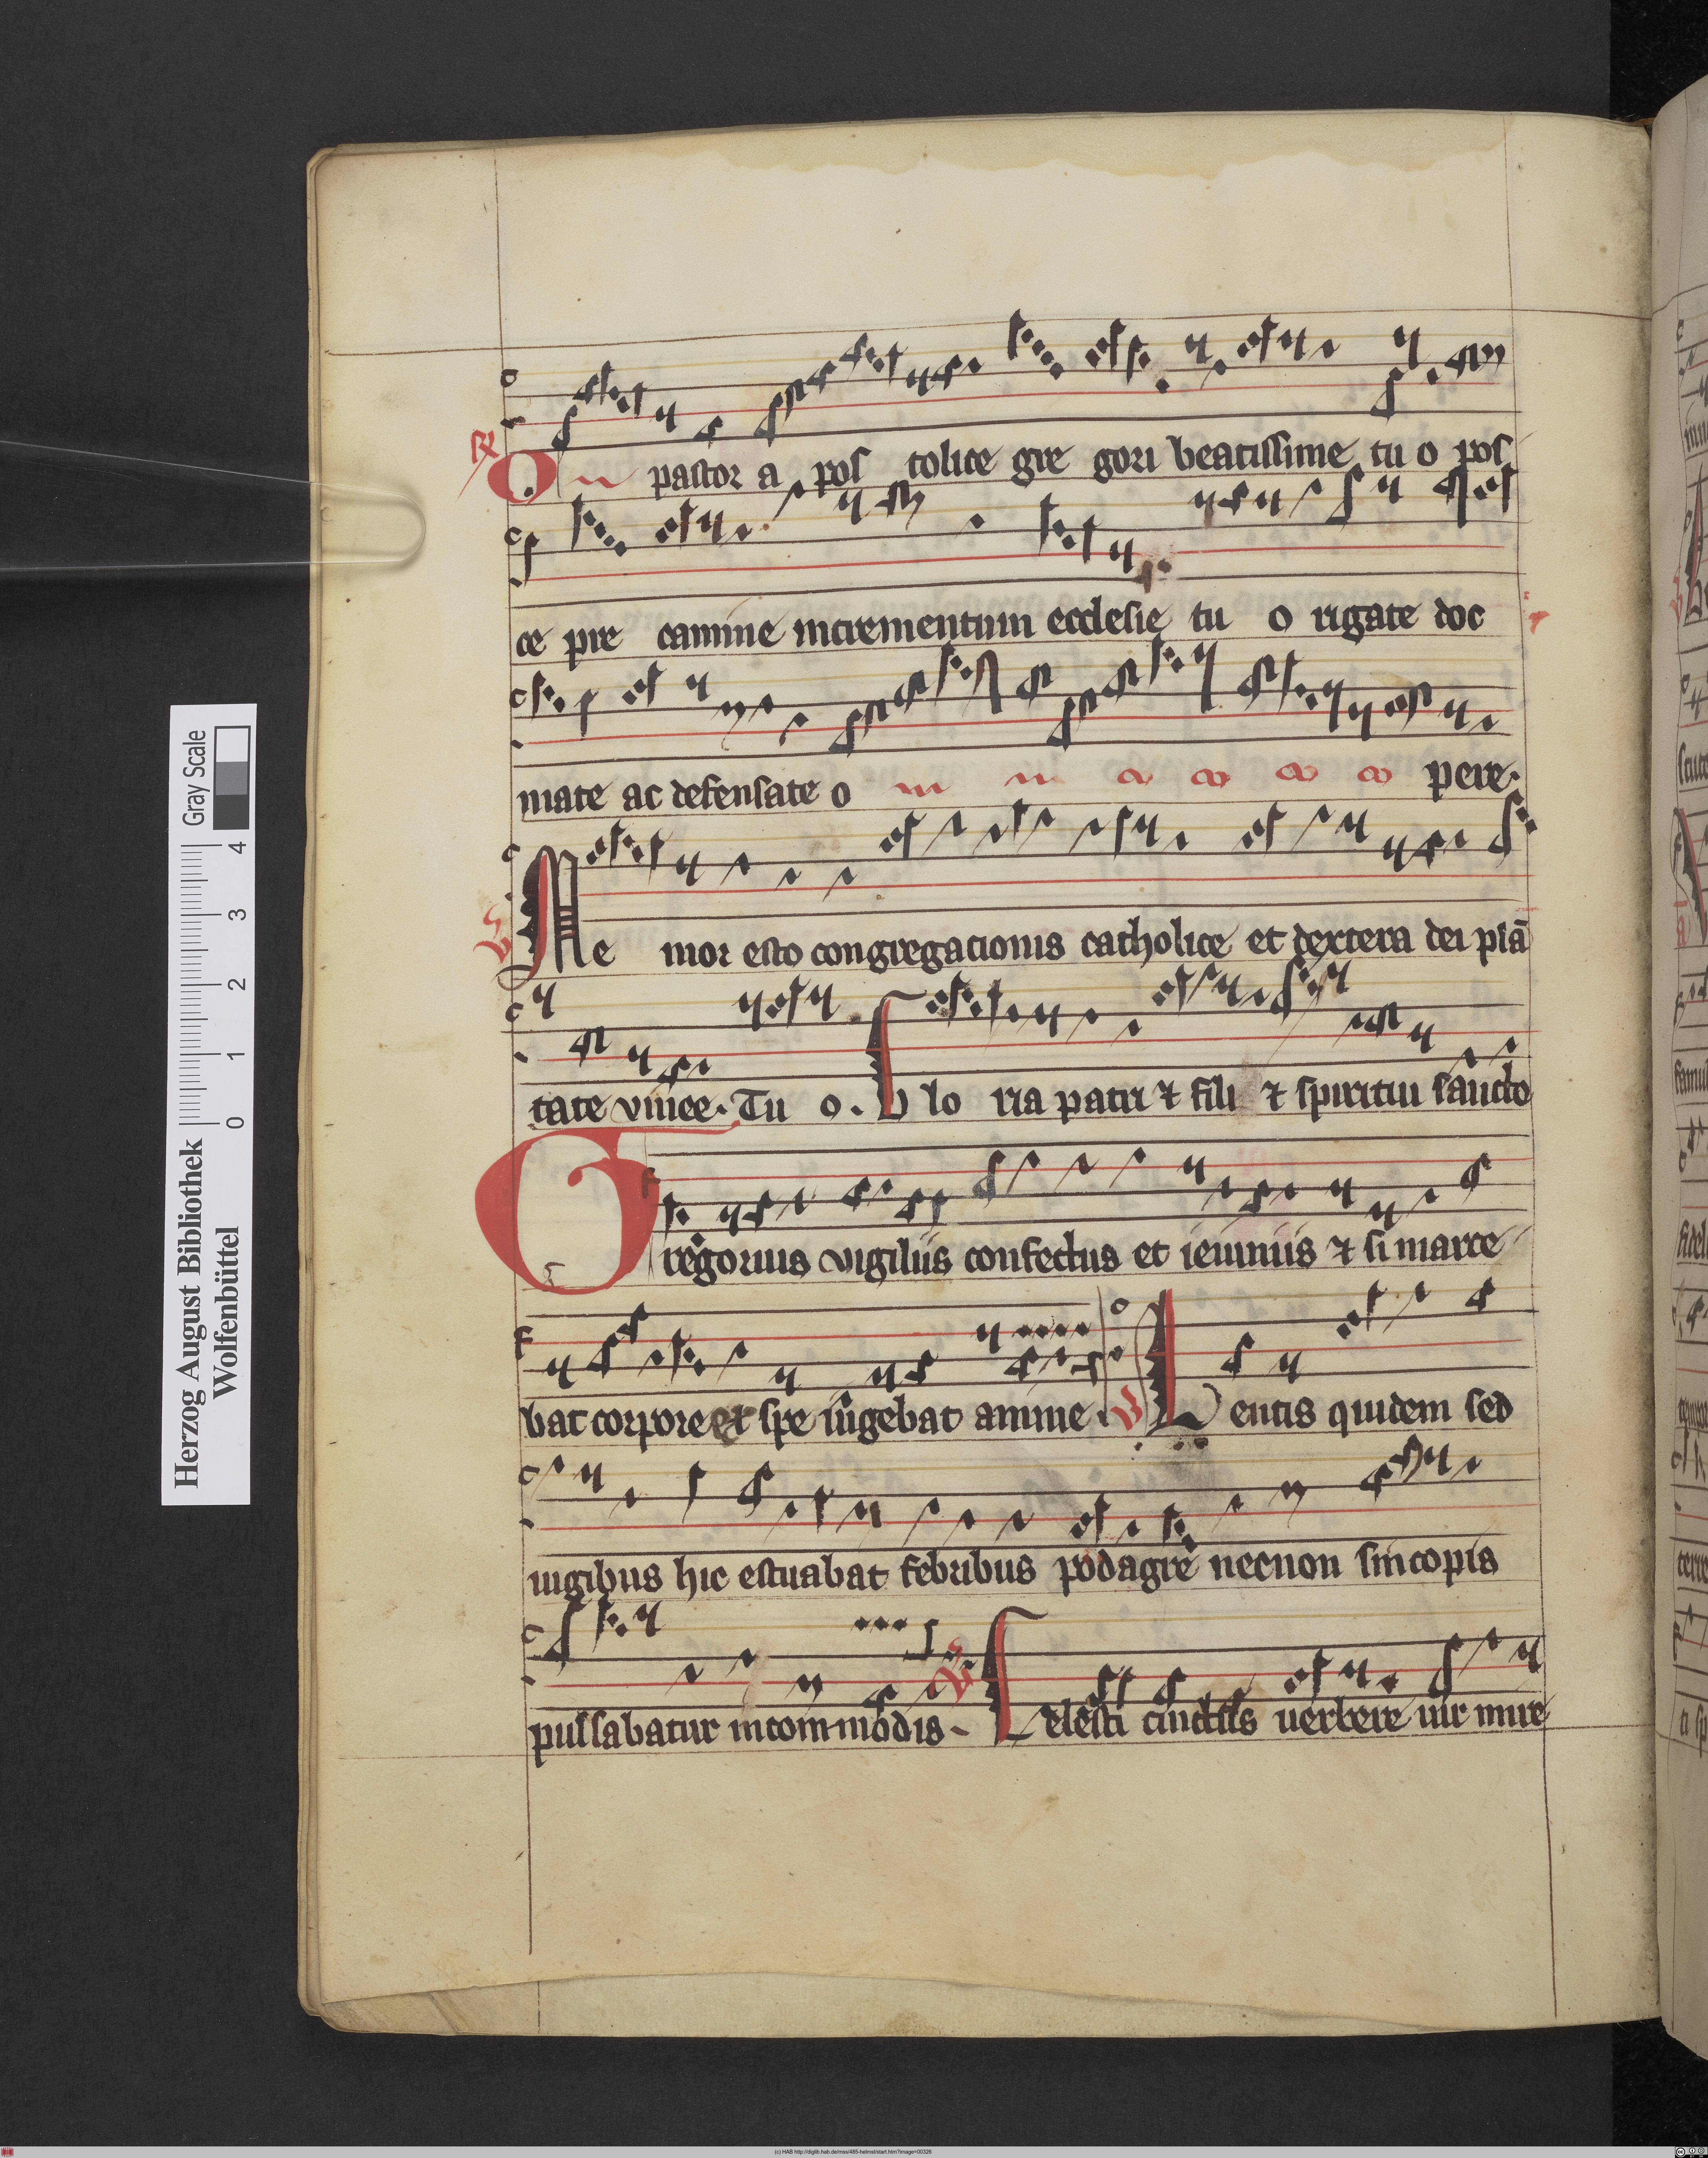 ℟ O pastor a pos tolice gre gori beatissime tu o pos
ce pre camine incrementum ecclesie tu o rigate doc
mate ac defensate o pere.
Me mor esto congregacionis catholice et dextera dei plā
tate vinee. Tu o. G lo ria patri ⁊ fili ⁊ spiritui sancto
Gregorius vigiliis confectus et ieiuniis ⁊ si marce
bat corpore et spe iūgebat anime. V Lentis quidem sed
iugibus hic estuabat febribus podagre necnon sincopis
pulsabatur incommodis- Celesti cinctus verbere vir mire
Herzog August Bibliothek
Wolfenbüttel
0 1 2 3 4
Gray Scale
(c) HAB http://diglib.hab.de/mss/485-helmst/start.htm?image=00326